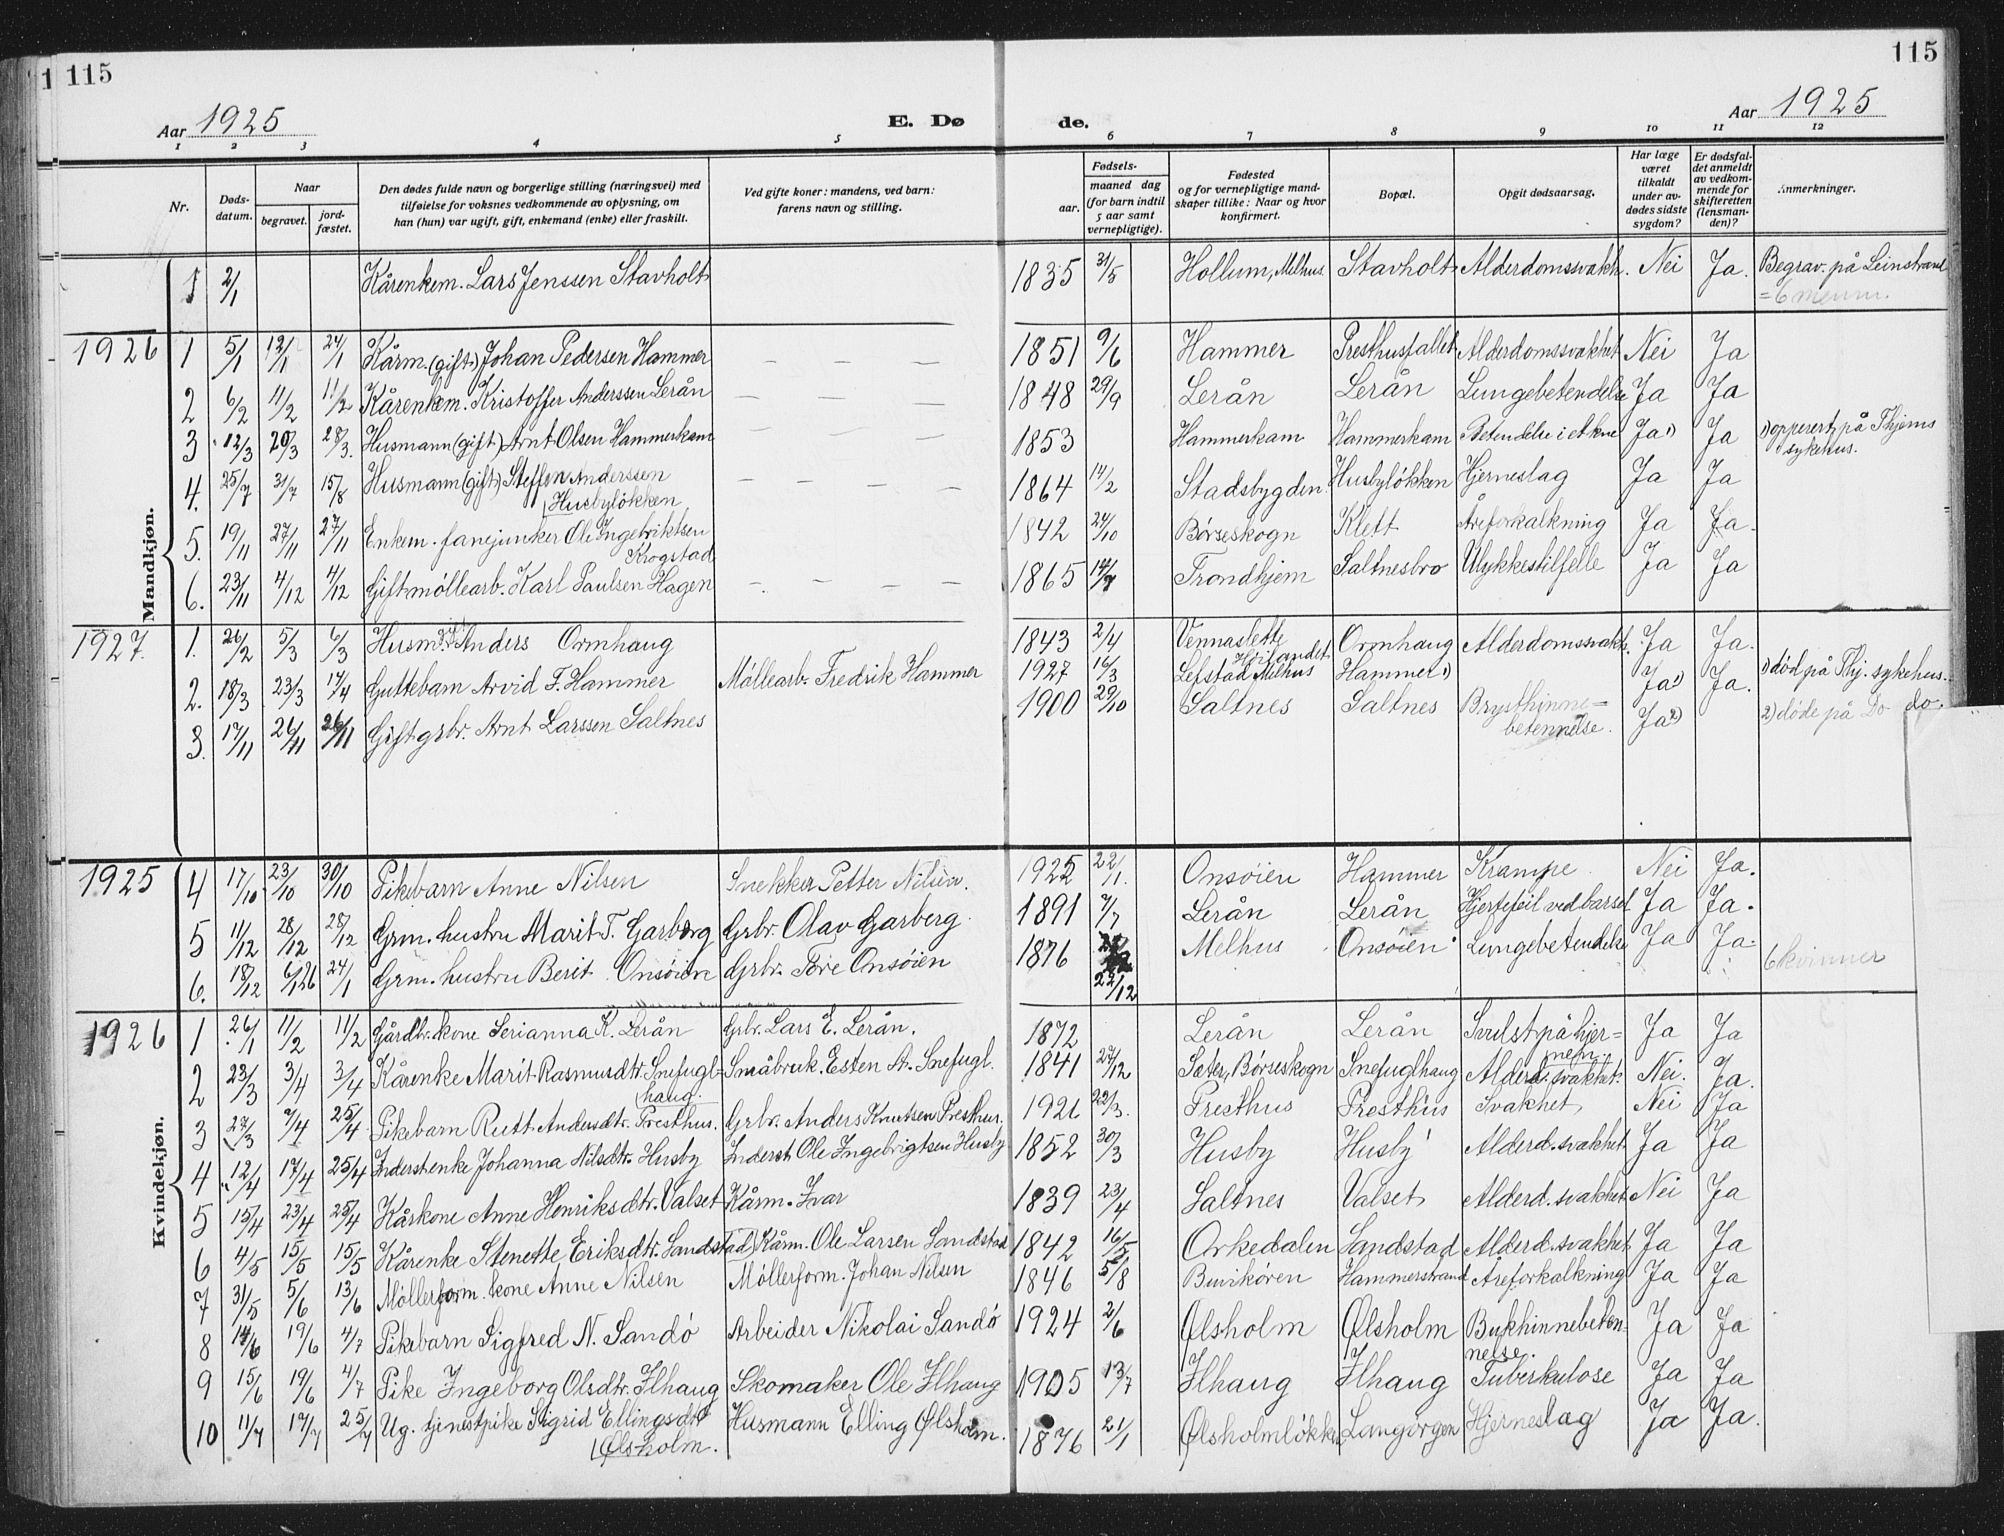 115
115
Aar 1925
E. Dø de.
Aar 1925
1 2 3 4 5 6 7 8 9 10 11 12
Nr. Døds-datum. Naar begravet. jord-fæstet. Den dødes fulde navn og borgerlige stilling (næringsvei) med tilføielse for voksnes vedkommende av oplysning, om han (hun) var ugift, gift, enkemand (enke) eller fraskilt. Ved gifte koner: mandens, ved barn: farens navn og stilling. Fødsels- aar. maaned dag (for barn indtil 5 aar samt vernepligtige). Fødested og for vernepligtige mand-skaper tillike: Naar og hvor konfirmert. Bopæl. Opgit dødsaarsag. Har læge været tilkaldt under av-dødes sidste sygdom? Er dødsfal-det anmeldt av vedkom-mende for skifteretten (lensman-den)? Anmerkninger.
Mandkjøn.
1 2/1 Kårenkem. Lars Jenssen Stavholt 1835 31/5 Hollum, Melhus Stavholt Alderdomssvakh. Nei Ja. Begrav. på Leinstrand
= 6 menn.
1926 1 5/1 13/1 24/1 Kårm. (gift) Johan Pedersen Hammer — — — 1851 9/6 Hammer Presthusfallet Alderdomssvakhet Nei Ja
2 6/2 11/2 11/2 Kårenkem. Kristoffer Anderssen Lerån — — — 1848 29/9 Lerån Lerån Lungebetendelse Ja Ja
3 12/3 20/3 28/3. Husmann (gift) Arnt Olsen Hammerkam 1853 Hammerkam Hammerkam Betendelse i et kne Ja 1) Ja 1) opperert på Thjems sykehus.
4. 25/7 31/7 15/8 Husmann (gift) Steffen Anderssen Husbyløkken — — — — 1864 14/2 Stadsbygden Husbyløkken Hjerneslag Ja Ja
5. 19/11 27/11 27/11 Enkem. fanejunker Ole Ingebriktsen Krogstad 1842 24/10 Børseskogn Klett Åreforkalkning Ja Ja.
6. 23/11 4/12 4/12 Gift møllearb. Karl Paulsen Hagen — — — — 1865 14/7 Trondhjem Saltnesbro Ulykkestilfelle Ja Ja
1927. 1. 26/2 5/3 6/3 Husm. gift Anders Ormhaug 1843 2/4 Vennaslette Høilandet Ormhaug Alderdomssvakh. Ja Ja.
2. 18/3 23/3 17/4 Guttebarn Arvid F. Hammer Møllearb. Fredrik Hammer 1927 16/3 Lefstad Melhus Hammer 1) Ja 1) Ja. 1) død på Thj. sykehus.
3. 17/11 26/11 26/11 Gift grbr. Arnt Larssen Saltnes 1900 29/10 Saltnes Saltnes Brysthinne= betennelse. Ja 2) 2) døde på Do do.
Kvindekjøn.
1925 4 17/10 23/10 30/10 Pikebarn Anne Nilsen Snekker Petter Nilsen. 1925 22/1. Onsøien Hammer Krampe Nei Ja.
5 11/12 28/12 28/12 Grm. hustru Marit T. Garberg Grbr. Olav Garberg. 1891 7/7 Lerån Lerån Hjertefeil ved barsel Ja Ja.
6. 18/12 6/1 26 24/1 Grm. hustru Berit Onsøien Grbr. Tore Onsøien 1876 22/12 Melhus Onsøien Lungebetendelse Ja Ja. 6 kvinner
1926 1 26/1 11/2 11/2 Gårdbr. kone Serianna K. Lerån Grbr. Lars E. Lerån. 1872 Lerån Lerån Svulst på hjer= nen. Ja Ja
2 23/3 3/4 3/4 Kårenke Marit Rasmusdtr. Snefugl-haug. Småbruk. Esten A. Snefugl. 1841 27/12 Sæter, Børseskogn Snefuglhaug Alderd. svakhet. Nei. Ja.
3 27/3 7/4 25/4 Pikebarn Rutt Andersdtr. Presthus. Grbr. Anders Knutsen Presthus. 1926 22/3. Presthus Presthus Svakhet Nei Ja
4 12/4 17/4 25/4 Inderstenke Johanna Nilsdtr. Husby Inderst Ole Ingebrigtsen Husby 1852 30/3 Husby Husby Alderd. svakhet Ja Ja
5 15/4 23/4 25/4 Kårkone Anne Henriksdtr. Valset Kårm. Ivar 1839 23/4 Saltnes Valset Alderd. svakhet Nei Ja
6 4/5 15/5 15/5 Kårenke Stenette Eriksdtr. Sandstad Kårm. Ole Larsen Sandstad 1842 16/5 Orkedalen Sandstad Alderd. svakhet Ja Ja
7 31/5 5/6 13/6 Møllerform. kone Anne Nilsen Møllerform. Johan Nilsen 1846 5/8 Buvikøren Hammerstrand Åreforkalkning Ja Ja
8 14/6 19/6 4/7 Pikebarn Sigfred N. Sandø Arbeider Nikolai Sandø 1924 2/6 Ølsholm Ølsholm Bukhinnebeten= nelse. Ja Ja
9 15/6 19/6 4/7 Pike Ingeborg Olsdtr. Ilhaug Skomaker Ole Ilhaug 1905 13/7 Ilhaug Ilhaug Tuberkulose Ja Ja
10 11/7 17/7 25/7 Ug. tjenestpike Sigrid Ellingsdtr Ølsholm. Husmann Elling Ølsholm. 1876 21/1 Ølsholmløkken Langørgen Hjerneslag Ja Ja.